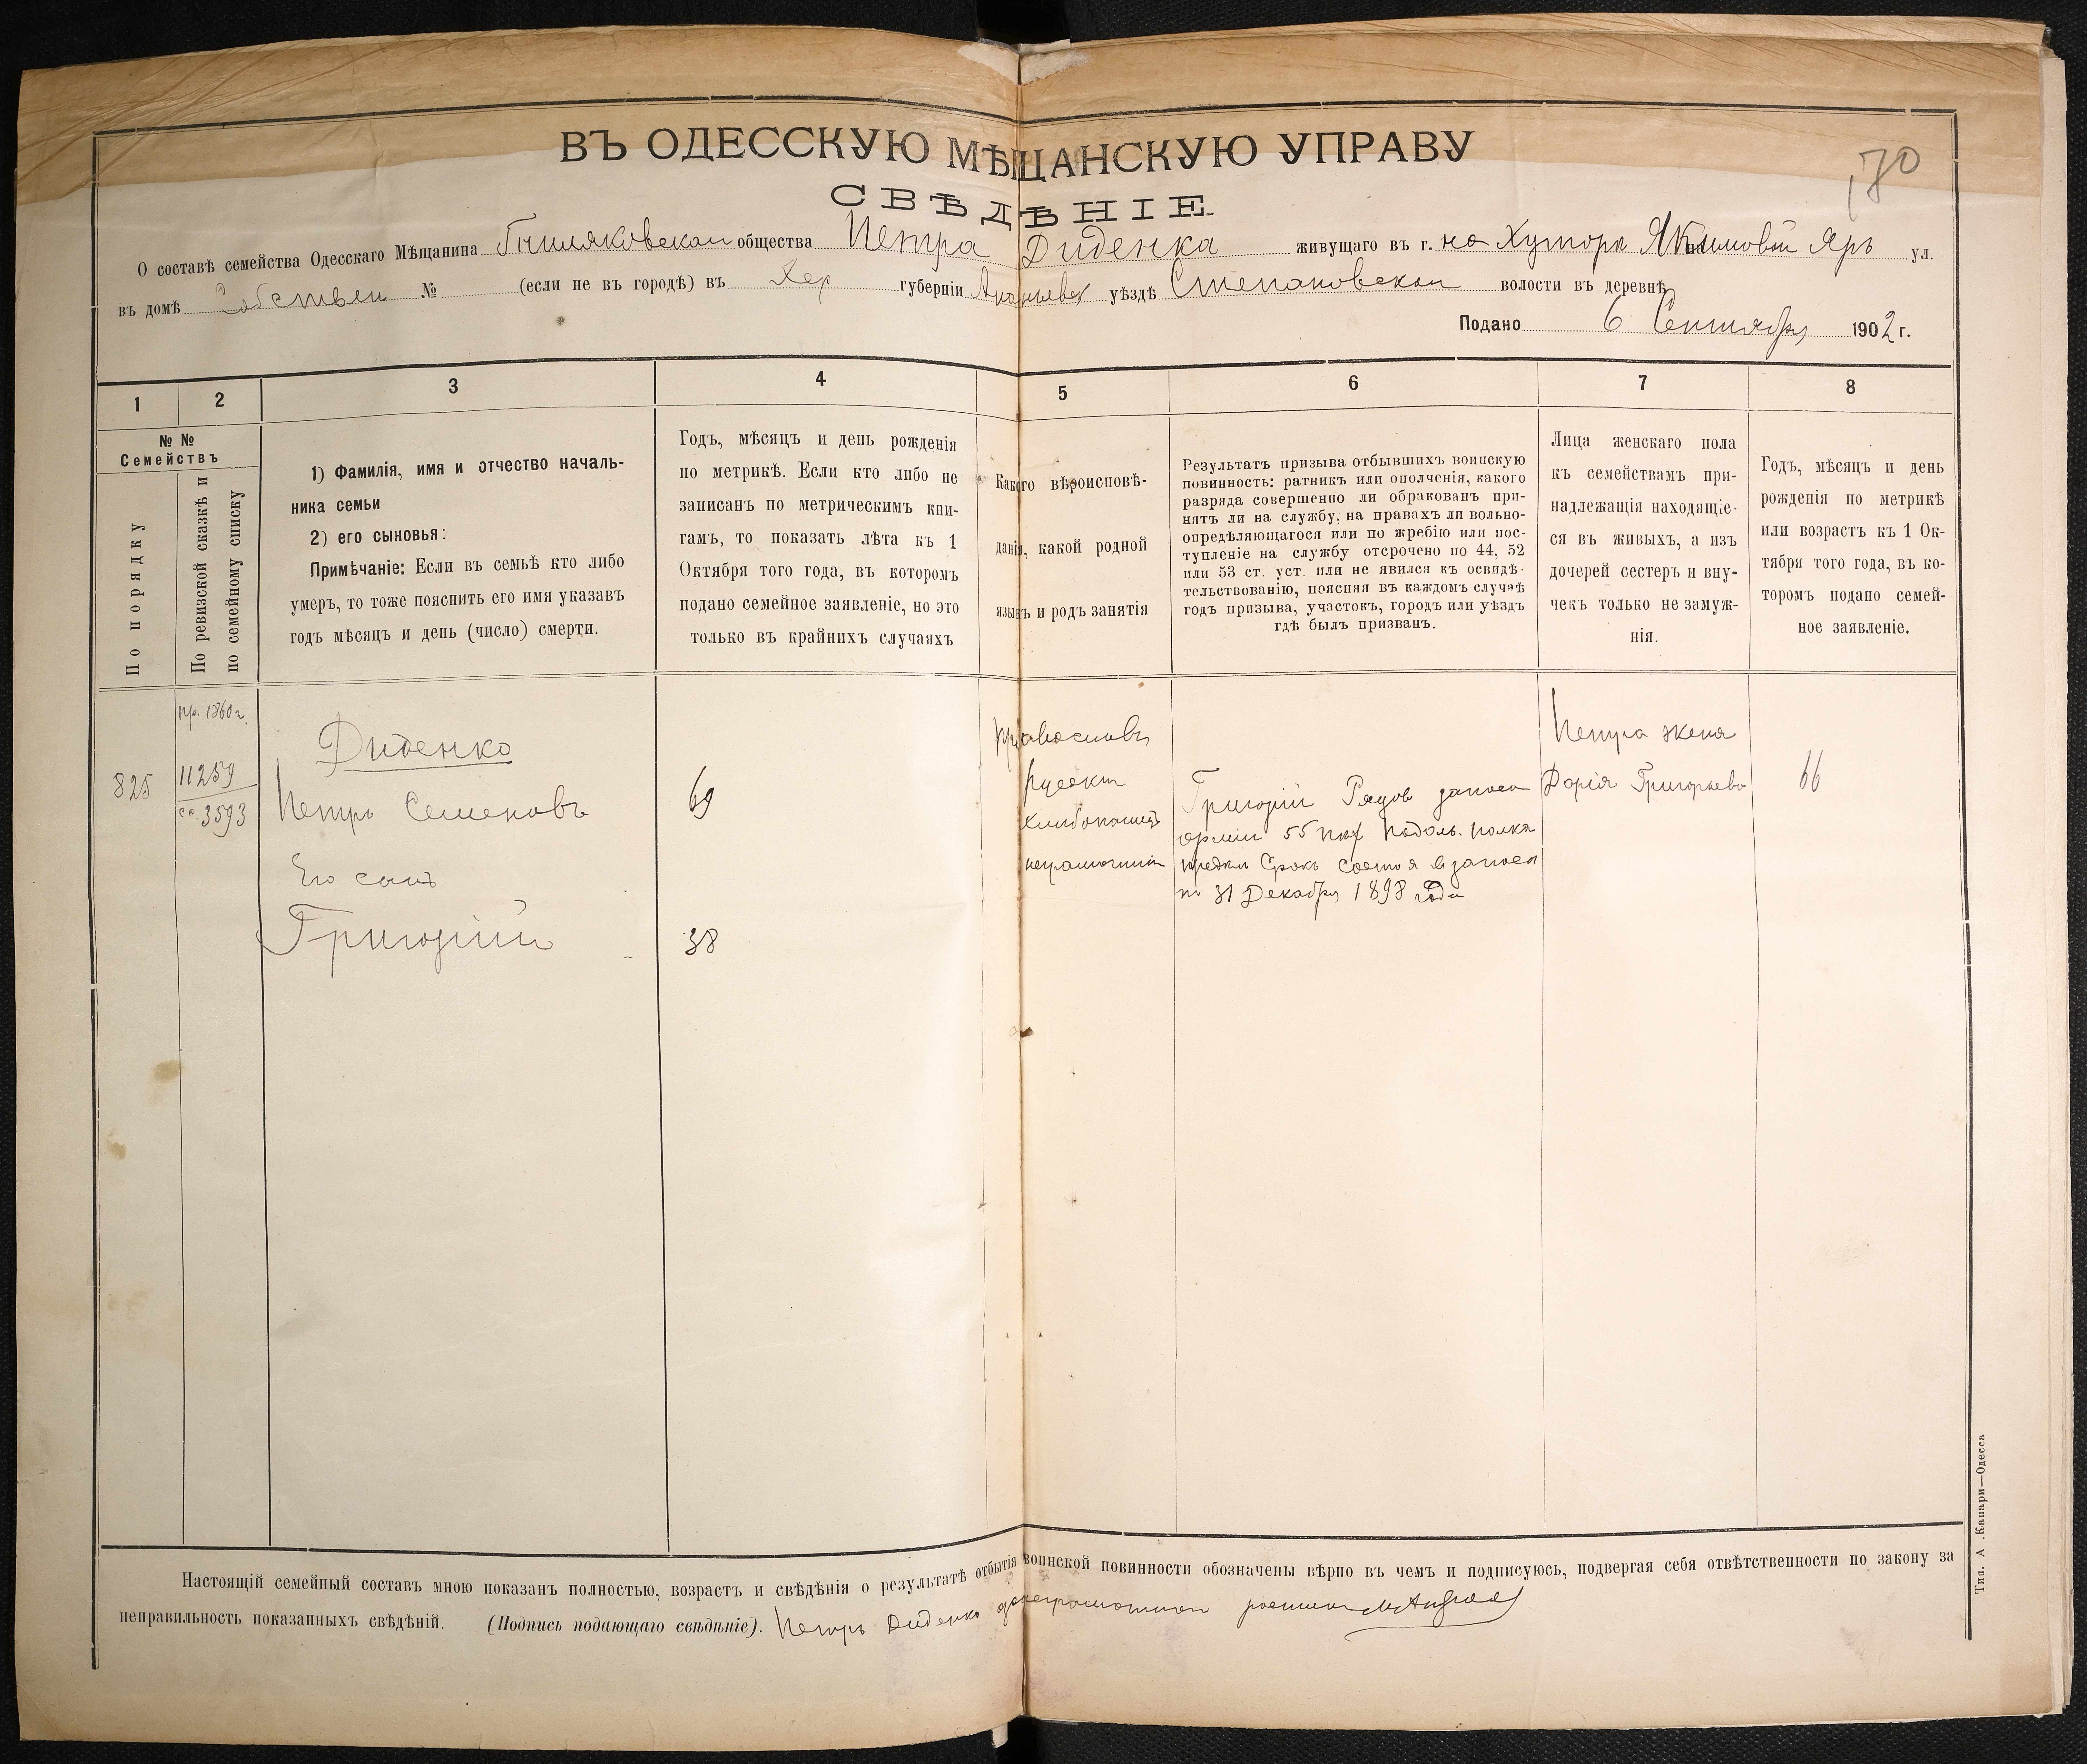 170
ВЪ ОДЕССКУЮ МѢЩАНСКУЮ УПРАВУ
СВѢДѢНІЕ.
О составѣ семейства Одесскаго Мѣщанина Гниляковскаго общества Петра Диденка живущаго въ г. на Хуторѣ Якимовой Яръ ул.
въ домѣ Собствен № (если не въ городѣ) въ Хер губерніи Ананьевск уѣздѣ Степановской волости въ деревнѣ
Подано 6 Сентября 1902 г.
1 2 3 4 5 6 7 8
№ №
Семействъ
По порядку
По ревизской сказкѣ и
по семейному списку
1) Фамилія, имя и отчество началь-
ника семьи
2) его сыновья:
Примѣчаніе: Если въ семьѣ кто либо
умеръ, то тоже пояснить его имя указавъ
годъ мѣсяцъ и день (число) смерти.
Годъ, мѣсяцъ и день рожденія
по метрикѣ. Если кто либо не
записанъ по метрическимъ кни-
гамъ, то показать лѣта къ 1
Октября того года, въ которомъ
подано семейное заявленіе, но это
только въ крайнихъ случаяхъ
Какого вѣроисповѣ-
данія, какой родной
языкъ и родъ занятія
Результатъ призыва отбывшихъ воинскую
повинность: ратникъ или ополченія, какого
разряда совершенно ли обракованъ при-
нятъ ли на службу, на правахъ ли вольно-
опредѣляющагося или по жребію или пос-
тупленіе на службу отсрочено по 44, 52
или 53 ст. уст. или не явился къ освидѣ-
тельствованію, поясняя въ каждомъ случаѣ
годъ призыва, участокъ, городъ или уѣздъ
гдѣ былъ призванъ.
Лица женскаго пола
къ семействамъ при-
надлежащія находящіе-
ся въ живыхъ, а изъ
дочерей сестеръ и вну-
чекъ только не замуж-
нія.
Годъ, мѣсяцъ и день
рожденія по метрикѣ
или возрастъ къ 1 Ок-
тября того года, въ ко-
торомъ подано семей-
ное заявленіе.
825
пр. 1860 г.
11259
сс. 3593
Диденко
Петръ Семеновъ
69
Его сынъ
Григорій
38
православн
русскій
хлебопашец
неграмотный
Григорій Рядов запаса
арміи 55 пех Подоль. полка
Срокъ состоя в запаса
по 31 Декабря 1898 года
Петра жена
Дарія Григорьева
66
Настоящій семейный составъ мною показанъ полностью, возрастъ и свѣдѣнія о результатѣ отбытія воинской повинности обозначены вѣрно въ чемъ и подписуюсь, подвергая себя отвѣтственности по закону за
неправильность показанныхъ свѣдѣній. (Подпись подающаго свѣдѣніе). Петръ Диденко неграмотный
Тип. А. Капари—Одесса